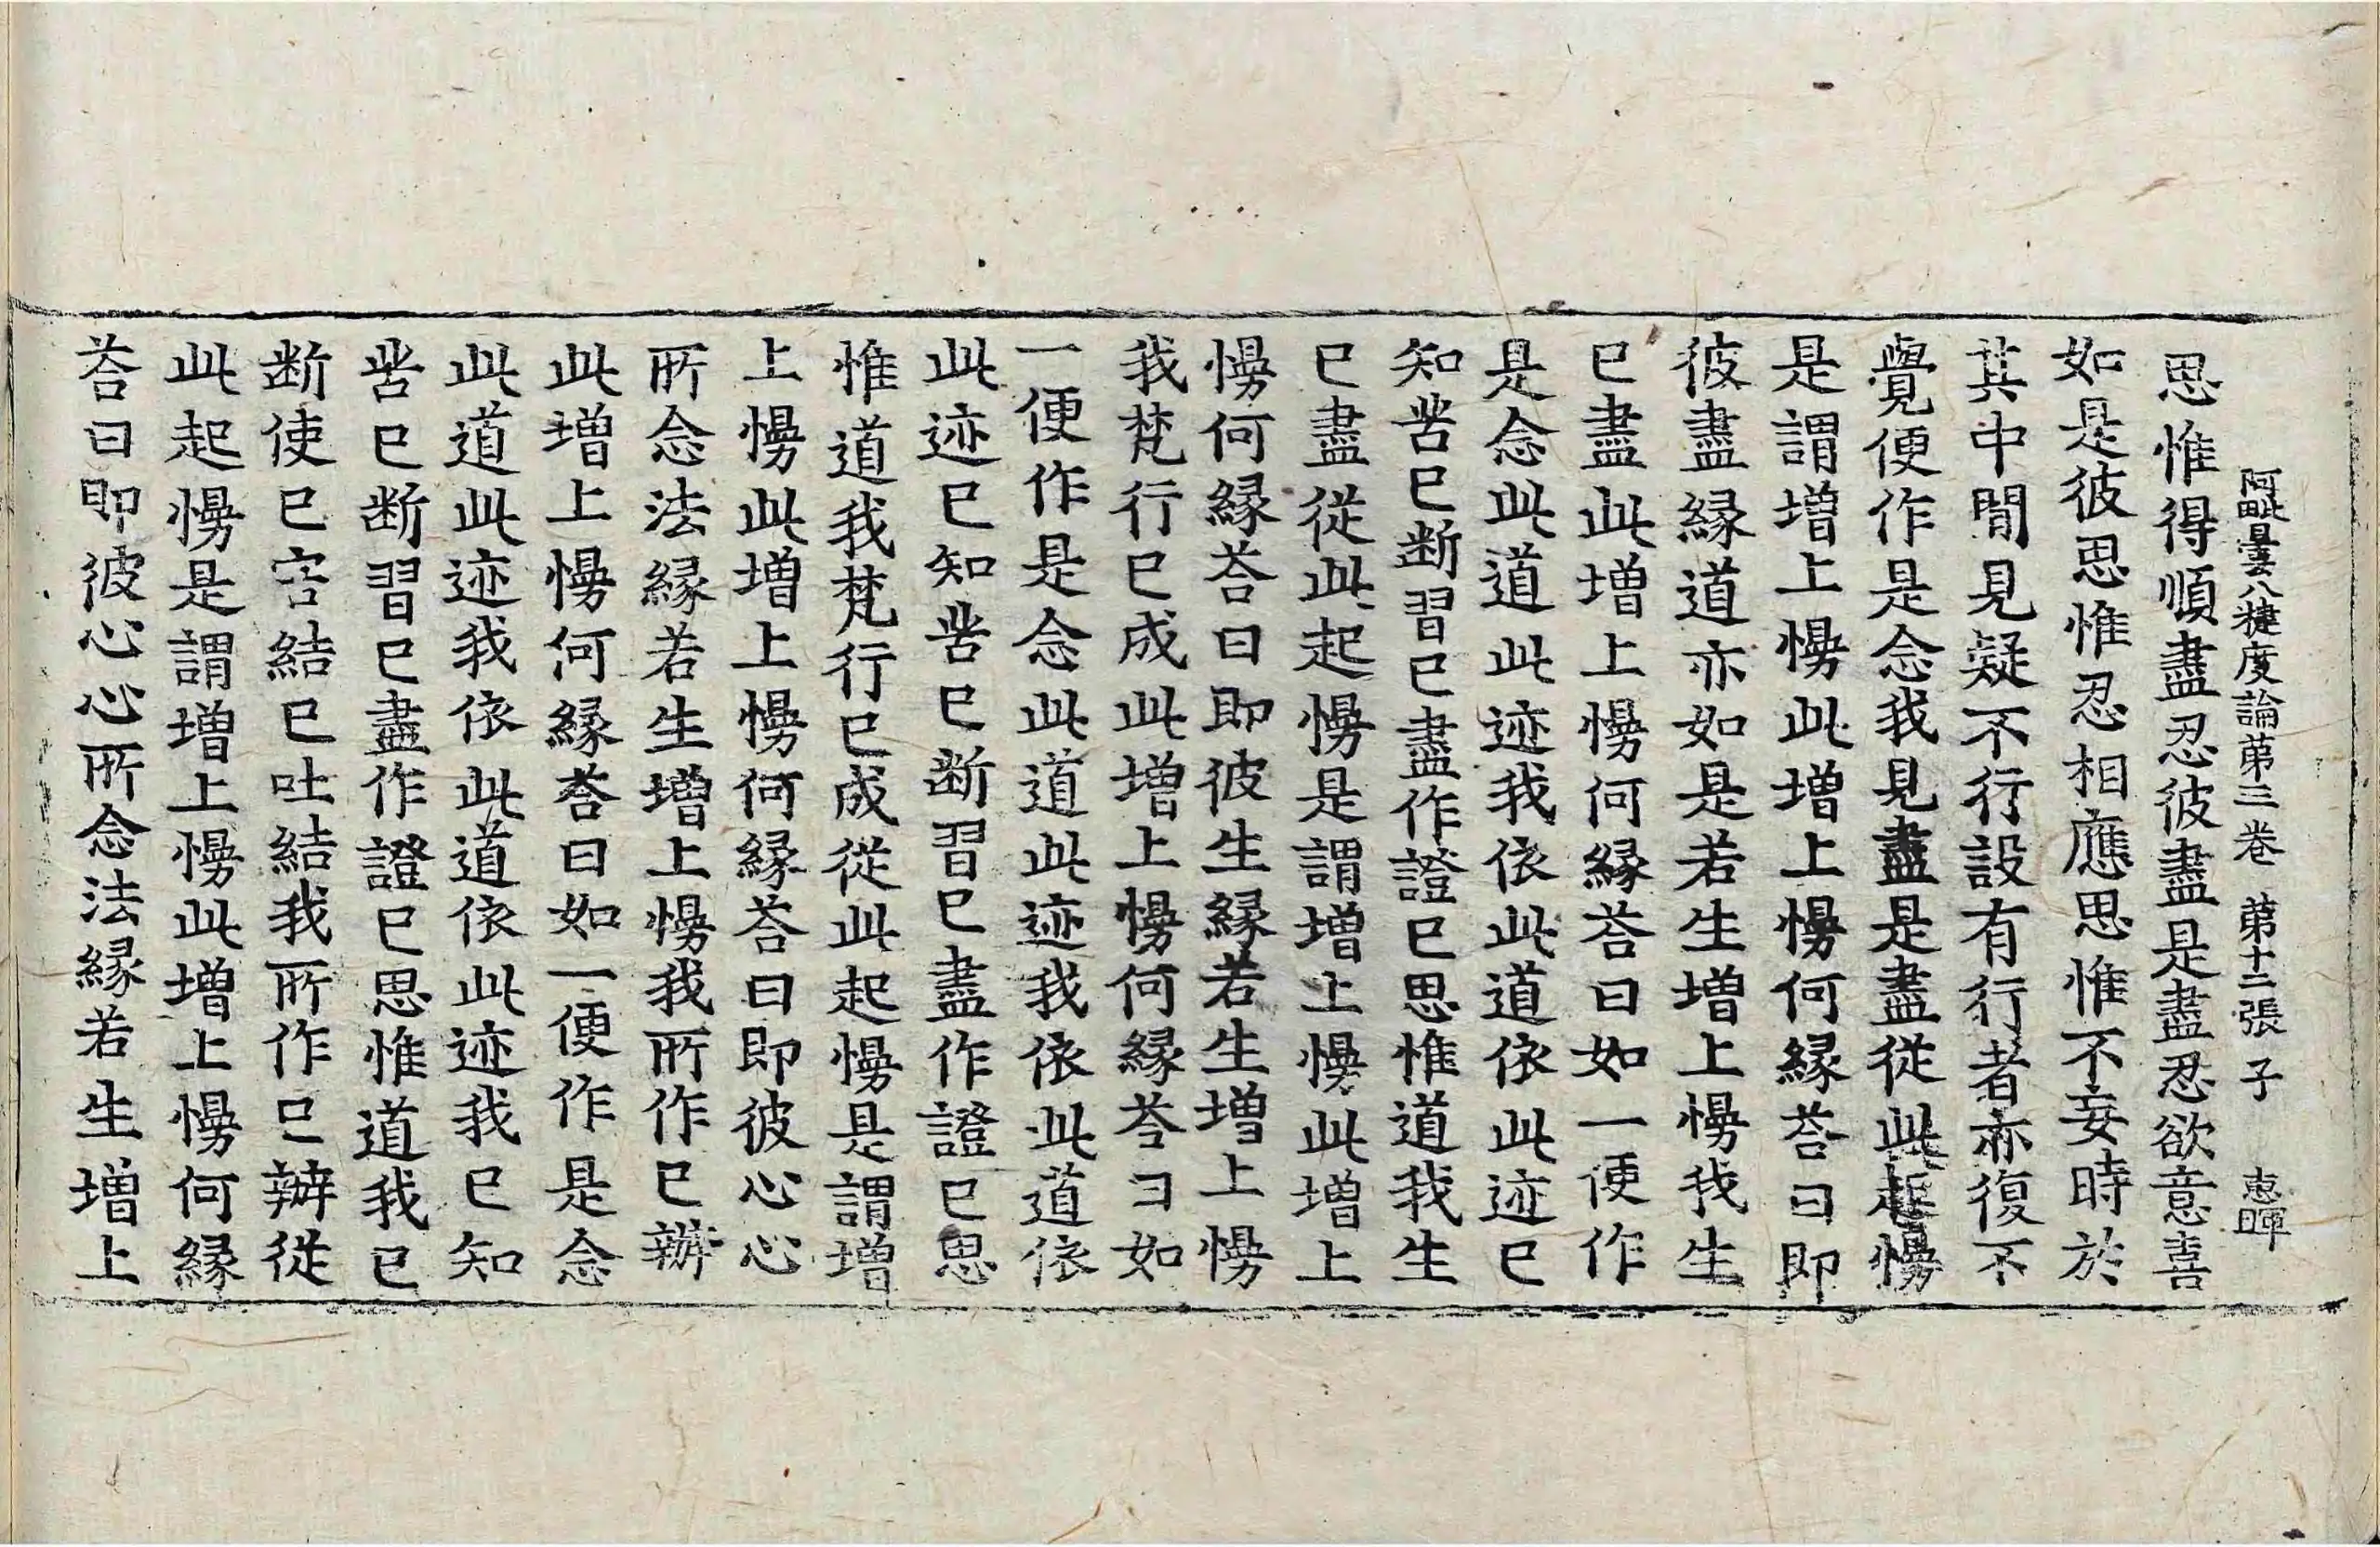 阿毗曇八犍度論第三卷 第十二張 子 惠暉
思惟得順盡忍彼盡是盡忍欲意喜
如是彼思惟忍相應思惟不妄時於
其中閒見疑不行設有行者亦復不
覺便作是念我見盡是盡從此起慢
是謂增上慢此增上慢何緣荅曰即
彼盡緣道亦如是若生增上慢我生
已盡此增上慢何緣荅曰如一便作
是念此道此迹我依此道依此迹已
知苦已断習已盡作證已思惟道我生
已盡從此起慢是謂增上慢此增上
慢何緣荅曰即彼生緣若生增上慢
我梵行已成此增上慢何緣荅曰如
一便作是念此道此迹我依此道依
此迹已知苦已断習已盡作證已思
惟道我梵行已成從此起慢是謂增
上慢此增上慢何緣荅曰即彼心心
所念法緣若生增上慢我所作已辦
此增上慢何緣荅曰如一便作是念
此道此迹我依此道依此迹我已知
苦已断習已盡作證已思惟道我已
断使已害結已吐結我所作已辦從
此起慢是謂增上慢此增上慢何緣
荅曰即彼心心所念法緣若生增上